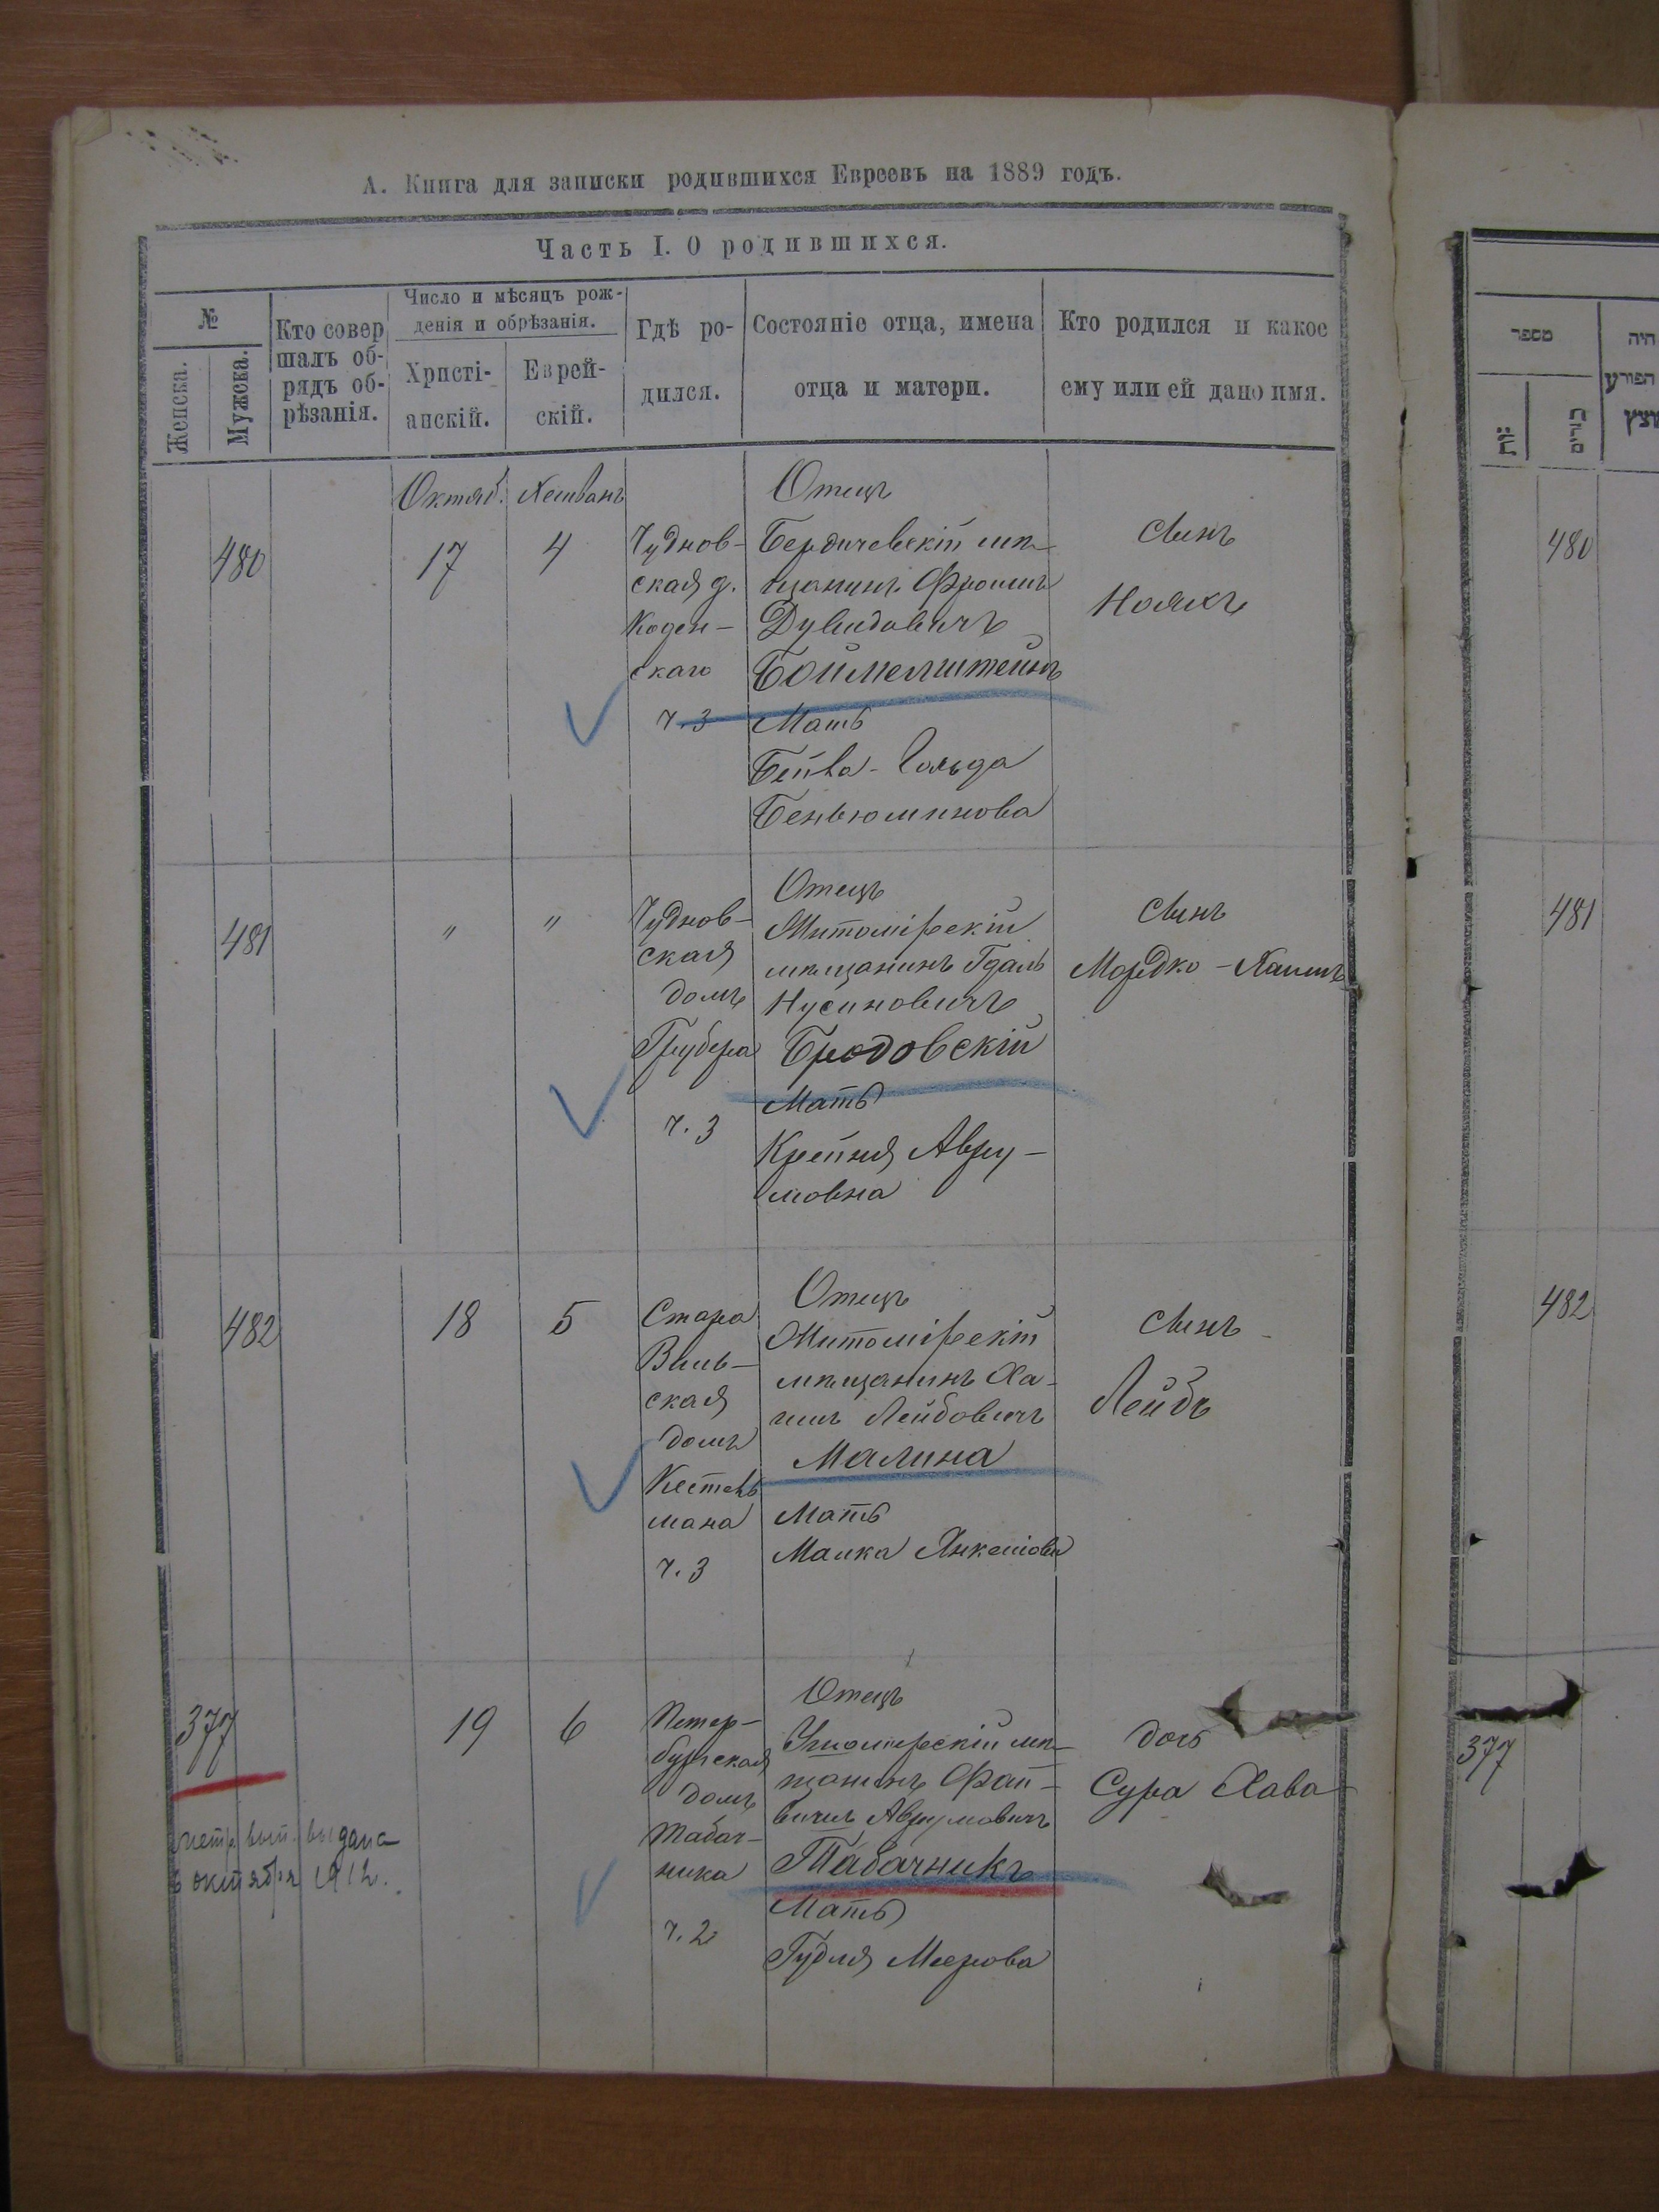 А. Книга для записки родившихся Евреевъ на 1889 годъ.
Часть I. О родившихся.
№
Женска.
Мужска.
Кто совер
шалъ об-
рядъ об-
рѣзанія.
Число и мѣсяцъ рож-
денія и обрѣзанія.
Христі-
анскій.
Еврей-
скій.
Гдѣ ро-
дился.
Состояніе отца, имена
отца и матери.
Кто родился и какое
ему или ей дано имя.
480
Октяб.
17
Хешванъ
4
Чуднов-
ская д.
Коден-
скаго
ч. 3
Отецъ
Бердичевскій мѣ-
щанинъ Фроимъ
Дувидовичъ
Боймелштейнъ
Мать
Бейла-Гольда
Беньюминова
Сынъ
Нояхъ
481
"
"
Чуднов-
ская
домъ
Грубера
ч. 3
Отецъ
Житомірскій
мѣщанинъ Гдаль
Нусиновичъ
Бродовскій
Мать
Крейня Авру-
мовна
Сынъ
Мордко-Хаимъ
482
18
5
Старо
Виль-
ская
домъ
Кестель
мана
ч. 3
Отецъ
Житомірскій
мѣщанинъ Ха-
имъ Лейбовичъ
Малина
Мать
Малка Янкелова
Сынъ
Лейбъ
377
19
6
Петер-
бургская
домъ
Табач-
ника
ч. 2
Отецъ
мѣ-
щанинъ Фай-
вишъ Аврумовичъ
Табачникъ
Мать
Гудля Меерова
дочь
Сура Хава
метр. вып. выдана
6 октября 1912.
מספר
480
481
482
377